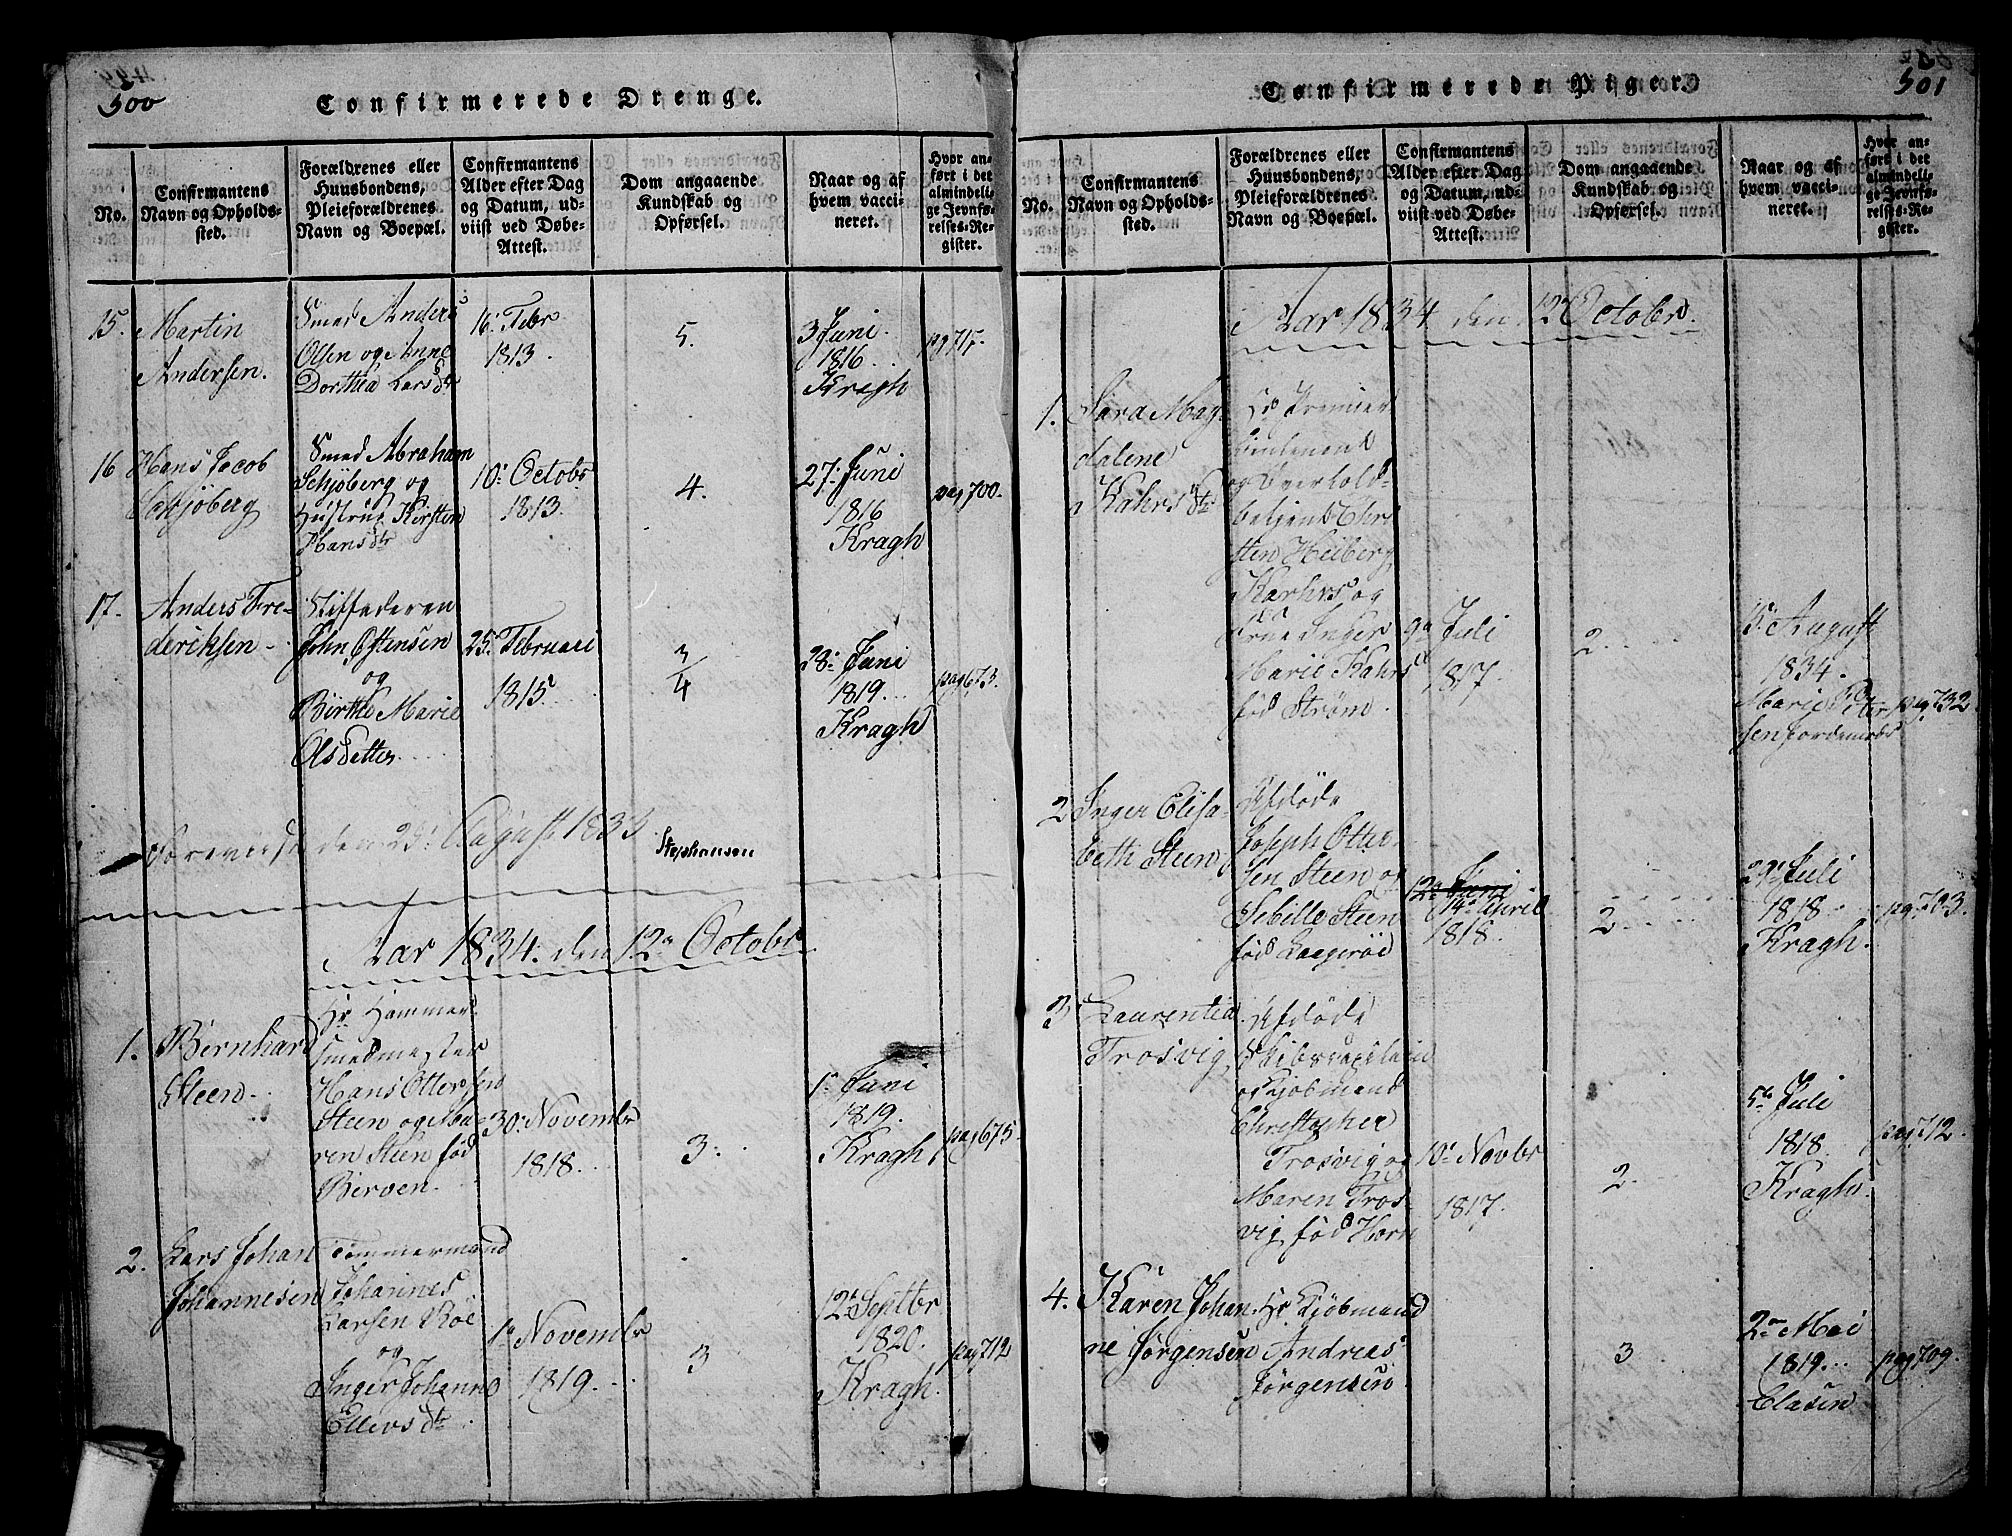 500
Confirmerede Drenge.
No.
Confirmantens
Navn og Opholds-
sted.
Forældrenes eller
Huusbondens,
Pleieforældrenes
Navn og Boepæl.
Confirmantens
Alder efter Dag
og Datum, ud-
viist ved Døbe-
Attest.
Dom angaaende
Kundskab og
Opførsel.
Naar og af
hvem vacci-
neret.
Hvor an-
ført i det
almindeli-
ge Jevnfø-
relses-Re-
gister.
15.
Martin
Andersen.
Smed Anders
Olsen og Anne
Dorthea Larsdtr
16. Febr
1813.
5.
3 Juni
1816
Kragh
pag 715.
16
Hans Jacob
Schjöberg
Smed Abraham
Schjöberg og
Hustrue Kirsten
Hansdtr
10. Octobr
1813.
4.
27. Juni
1816
Kragh
pag 700.
17.
Anders Fre-
deriksen
Stiffaderen
John Östensen
og
Birthe Marie
Olsdetter
25. Februari
1815
3/4
28. Juni
1819
Kragh
pag 673.
den 29. August 1833
Stephansen
Aar 1834. den 12te Octobr
1.
Bernhard
Steen
Hr Hammer-
smedmester
Hans Ottersen
Steen og Ma-
ren Steen fød
Berven
30. Novembr
1818
3.
1. Juni
1819.
Kragh
pag 675.
2.
Lars Johan
Johannesen
Tömmermand
Johannes
Larsen Röe
og
Inger Johanne
Ellevsdtr
1. Novembr
1819.
3
12. Septbr
1820.
Kragh.
pag 712
501
Confirmerede Piger.
No.
Confirmantens
Navn og Opholds-
sted.
Forældrenes eller
Huusbondens,
Pleieforældrenes
Navn og Boepæl.
Confirmantens
Alder efter Dag
og Datum, ud-
viist ved Døbe-
Attest.
Dom angaaende
Kundskab og
Opførsel.
Naar og af
hvem vacci-
neret.
Hvor an-
ført i det
almindeli-
ge Jevnfø-
relses-Re-
gister.
Aar 1834 den 12 Octobr.
1.
Sara Mag-
dalene
Kahrs
Hr Premier
Lieutenant
og Overtold-
betjent Chri-
sten Heiberg
Karhrs og
Frue Inger
Marie Kahrs
fød Ström.
9de Juli
1817.
2
15. August
1834.
Marie Peter-
sen Jordemoder
pag. 732
2
Inger Elisa-
beth Steen
Afdöde
Joseph Otter-
sen Steen og
Sebille Steen
fød Laageröe
12. Juni
14. April
1818
2
29. Juli
1818
Kragh.
pag. 723.
3
Laurentia
Trosvig
Afdöde
Skibscapitain
og Kjöbmand
Christopher
Trosvig og
Maren Tros-
vig fød Horn
10. Novbr
1817.
2.
5te Juli
1818.
Kragh.
pag. 712.
4.
Karen Johan-
ne Jörgensen
Hr Kjöbmand
Andreas
Jörgensen
3
2den Mai
1819
Clasen
pag. 709.